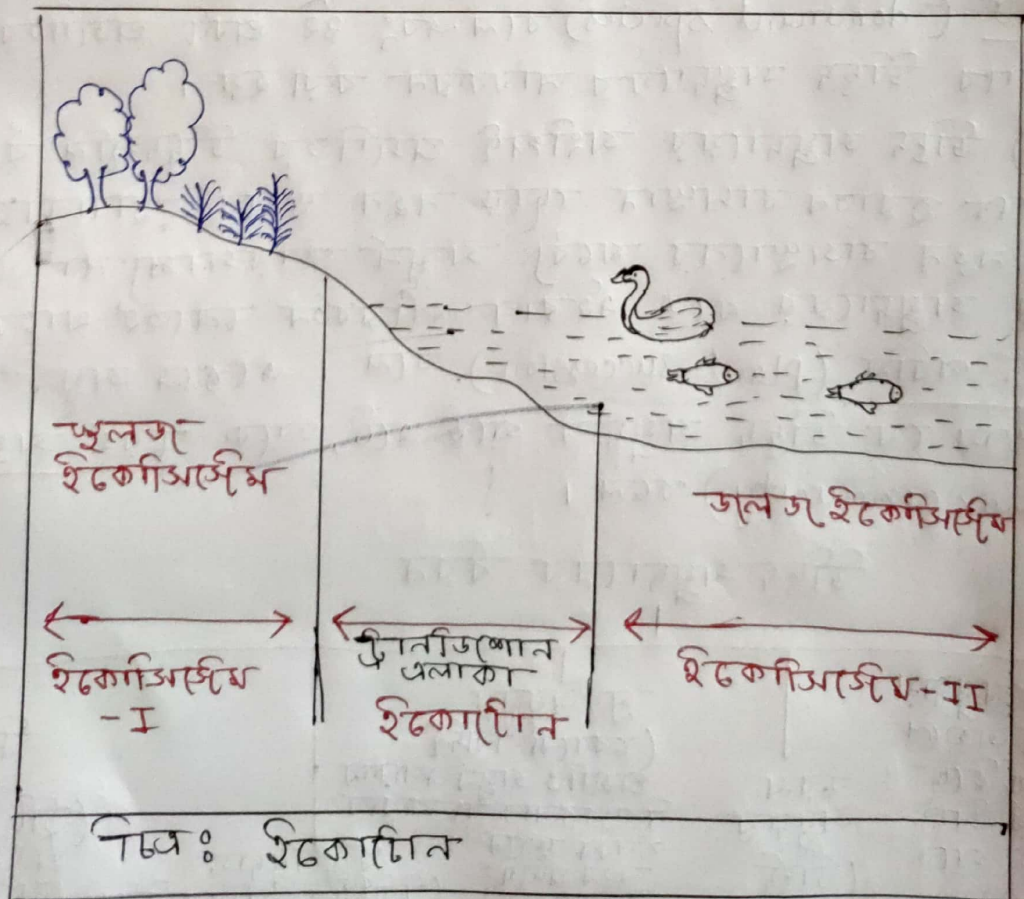 স্থলজ
ইকোসিস্টেম
জলজ ইকোসিস্টেম
ইকোসিস্টেম
-I
ট্রানজিশোন
এলাকা
ইকোটোন
ইকোসিস্টেম-II
চিত্র: ইকোটোন